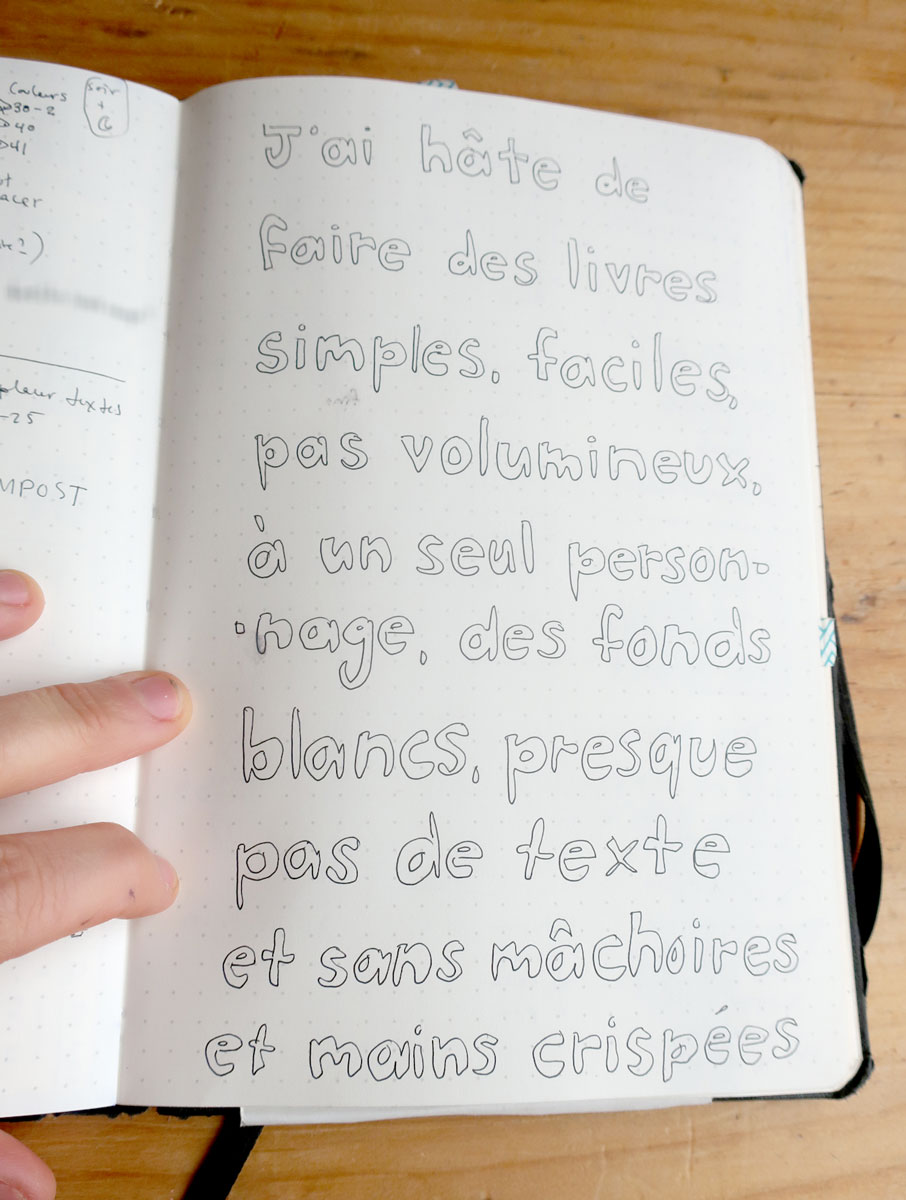 Couleurs
30-2
40
41
soir
+
textes
-25
MPOST
J'ai hâte de
faire des livres
simples, faciles,
pas volumineux,
à un seul person-
-nage, des fonds
blancs, presque
pas de texte
et sans mâchoires
et mains crispées